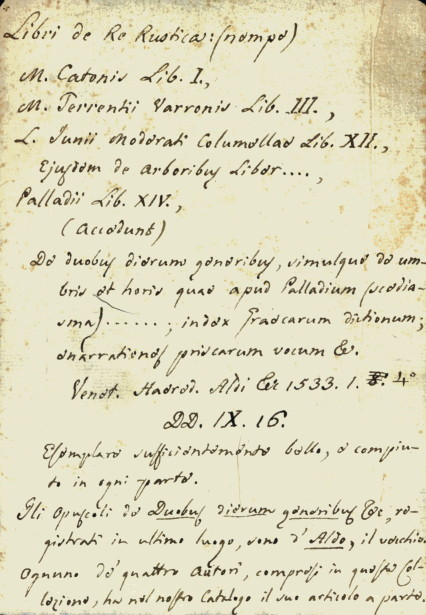 Libri de Re Rustica: (nempe)
M. Catonis Lib. I.,
M. Terrentii Varronis Lib. III.,
L. Junii Moderati Columellae Lib. XII.,
Ejusdem de Arboribus Liber....,
Palladii Lib. XIV.,
(Accedunt)
De duobus dierum generibus, simulque de um-
bris et horis quae apud Palladium (scedia-
sma)......; index Graecarum dictionum;
enarrationes priscarum vocum &c.
Venet. Haered. Aldi &c 1533. 1. 4°
DD. IX. 16.
Esemplare sufficientemente bello, e compiu-
to in ogni parte.
Gli Opuscoli de Duobus dierum generibus &c, re-
gistrati in ultimo luogo, sono d' Aldo, il vecchio
Ognuno de' quattro Autori, compresi in questa Col-
lezione, ha nel nostro Catalogo il suo articolo a parte.